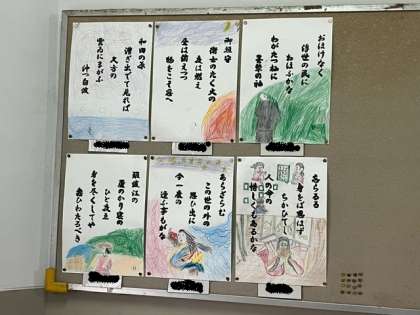 おほけなく
浮世の民に
おほふかな
わがたつ杣に
墨染の袖
御垣守
衛士のたく火の
夜は燃え
昼は消えつつ
物をこそ思へ
和田の原
漕ぎ出でて見れば
久方の
雲ゐにまがふ
沖つ白波
忘らるる
身をば思はず
ちかひてし
人の命の
惜しくもあるかな
あらざらむ
この世の外の
思ひ出に
今一度の
逢ふ事もがな
難波江の
蘆のかり寝の
ひと夜ゆゑ
身を尽くしてや
恋ひわたるべき